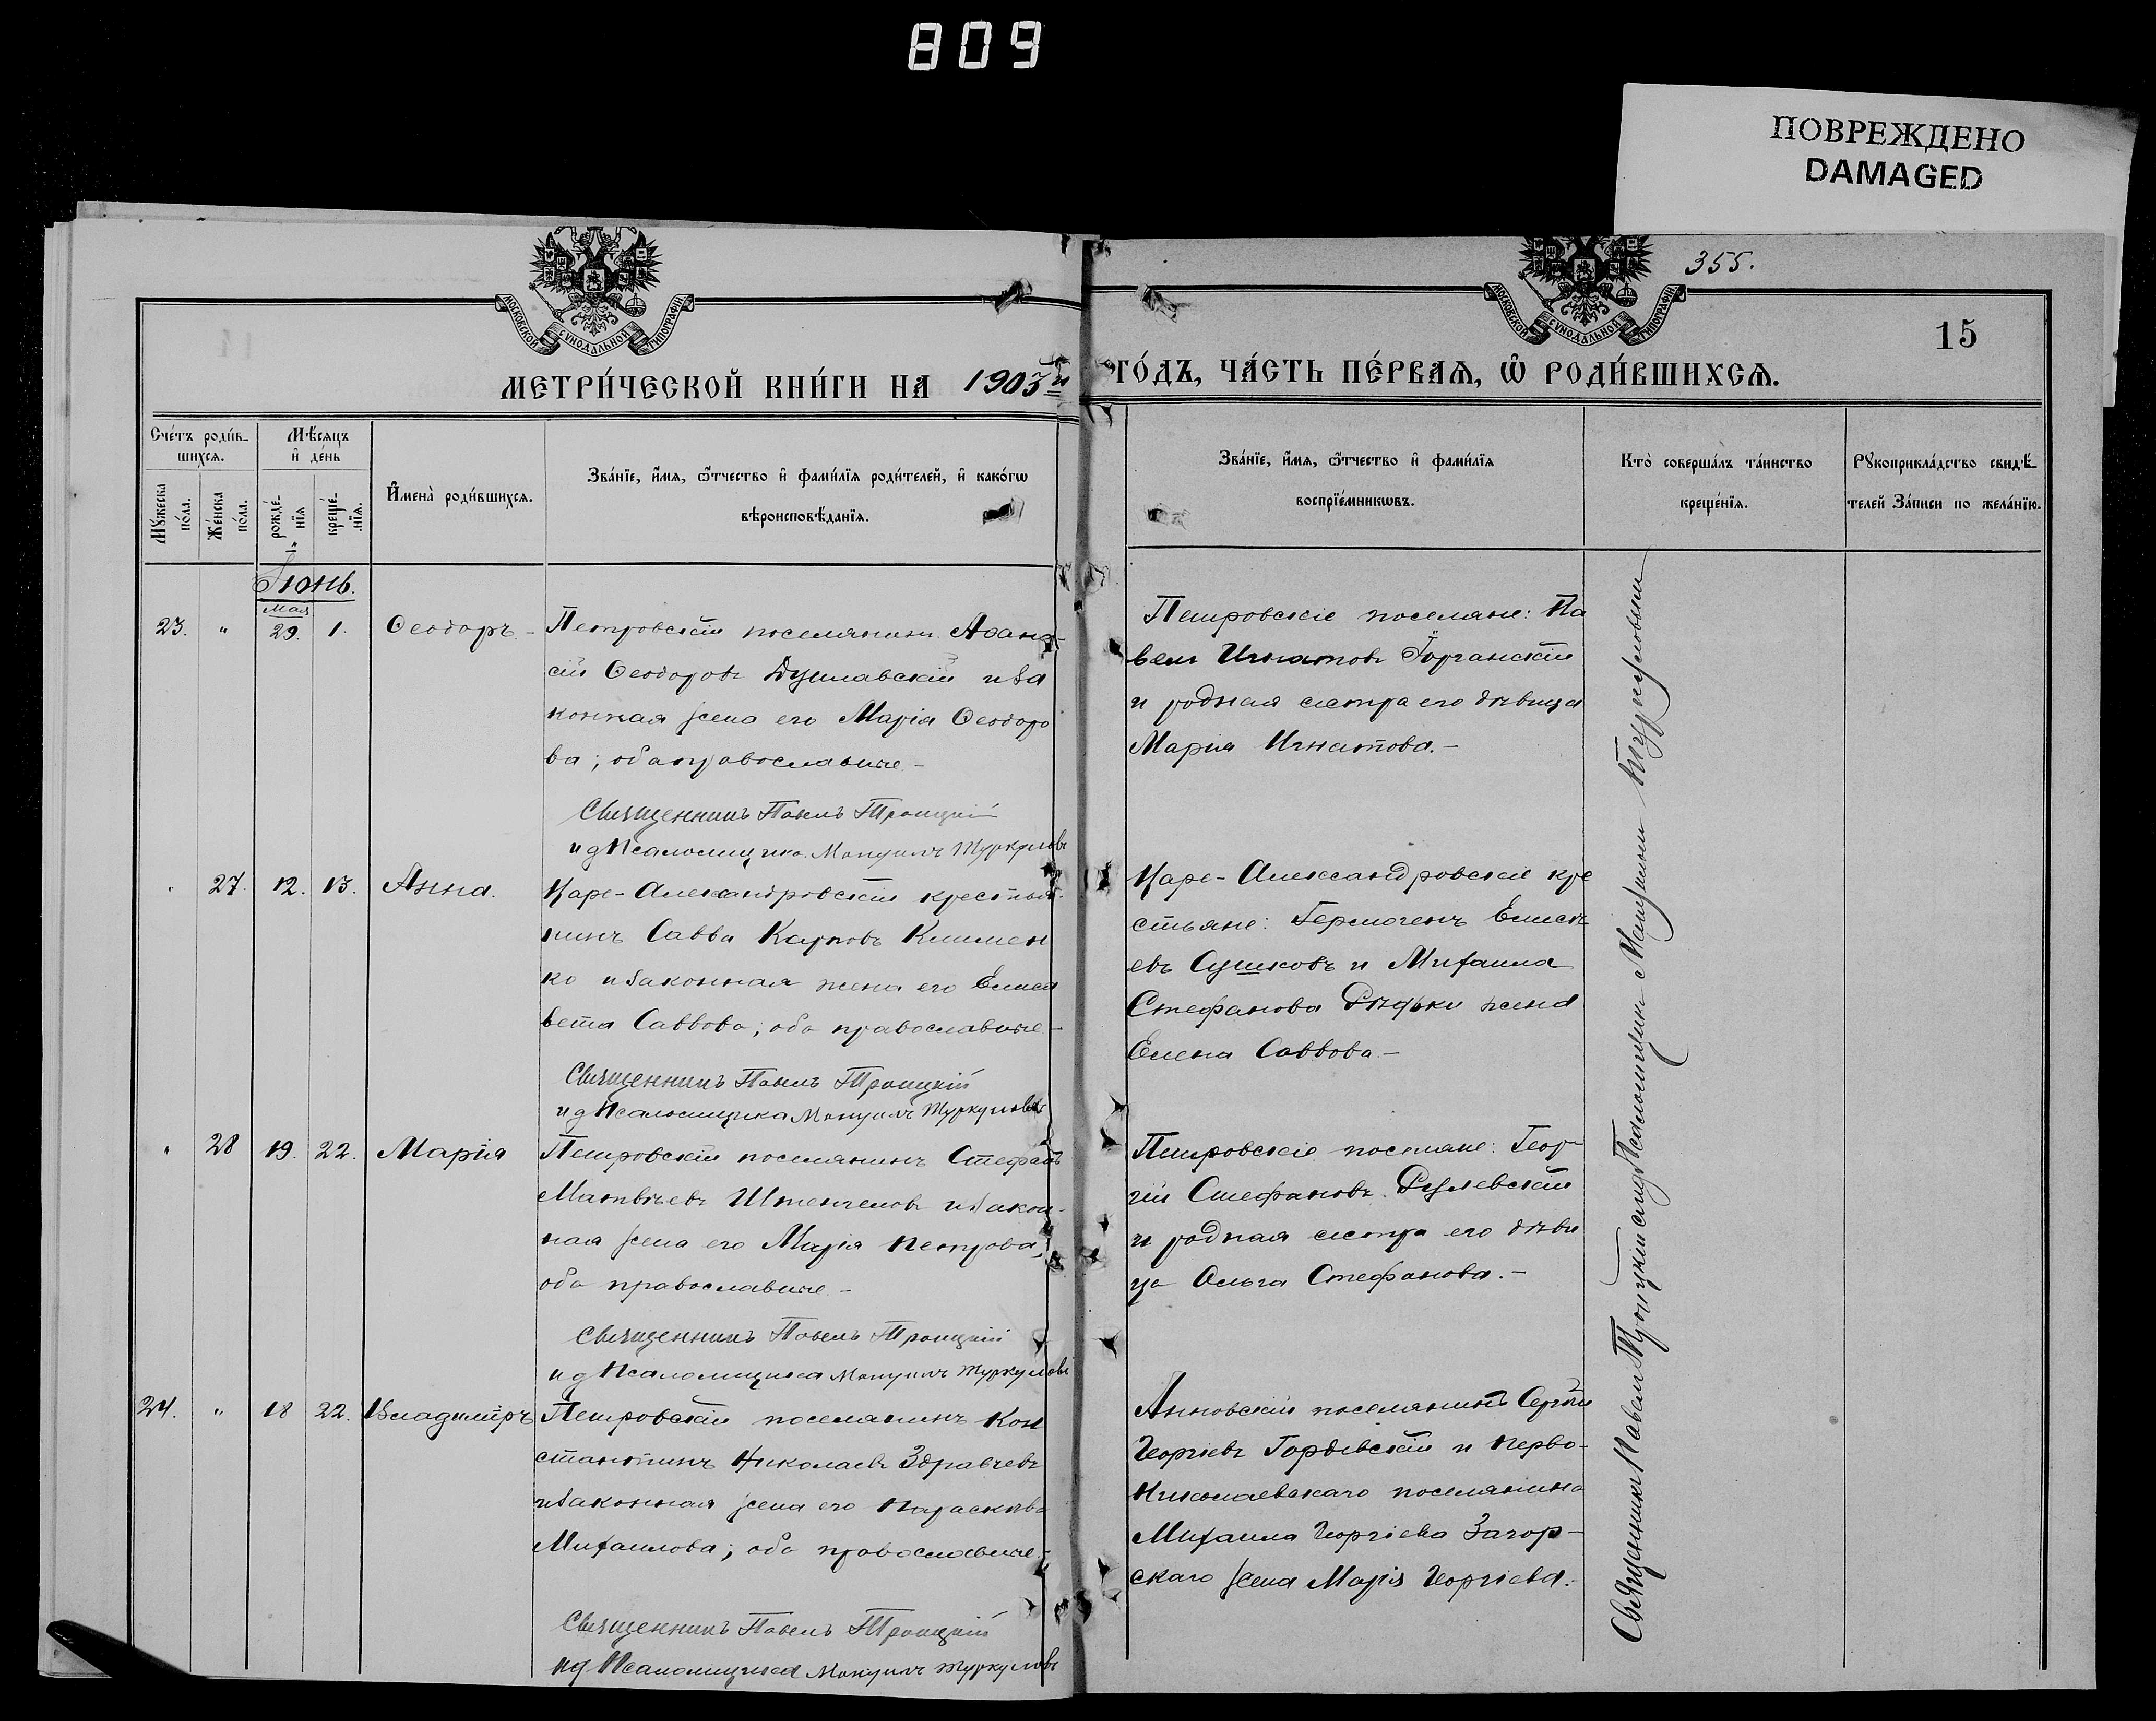 809
ПОВРЕЖДЕНО
DAMAGED
355.
15
МОСКОВСКОЙ СѴНОДАЛЬНОЙ ТИПОГРАФІИ
МОСКОВСКОЙ СѴНОДАЛЬНОЙ ТИПОГРАФІИ
МЕТРИ́ЧЕСКОЙ КНИ́ГИ НА 1903й ГО́ДЪ, ЧА́СТЬ ПЕ́РВАѦ, Ѡ РОДИ́ВШИХСѦ.
Счетъ родив-
шихся.
Мѣсяцъ
и день
Мужеска
пола.
Женска
пола.
рожде-
нія
креще-
нія.
Имена родившихся.
Званіе, имя, ѿчество и фамилія родителей, и какогѡ
вѣроисповѣданія.
Званіе, имя, ѿчество и фамилія
воспріемникѡвъ.
Кто совершалъ таинство
крещенія.
Рукоприкладство свидѣ-
телей записи по желанію.
Іюнь.
Мая
23. " 29. 1. Ѳеодоръ – Петровскій поселянинъ Аѳана-
сій Ѳеодоровъ Душлавскій и за
конная жена его Марія Ѳеодоро
ва; оба православные –
Священникъ Павелъ Троицкій
и д Псаломщика Мануилъ Туркуловъ
Петровскіе поселяне: Па
велъ Игнатовъ Горганскій
и родная сестра его дѣвица
Марія Игнатова. –
" 27. 12. 13. Анна. Царе-Александровскій крестья-
нинъ Савва Карповъ Климен
ко и законная жена его Елиса
вета Саввова; оба православные –
Священникъ Павелъ Троицкій
и д Псаломщика Мануилъ Туркуловъ
Царе-Александровскіе кре
стьяне: Гермогенъ Елисѣ
евъ Сушковъ и Михаила
Стефанова Рѣдьки жена
Елена Саввова. –
" 28 19. 22. Марія Петровскій поселянинъ Стефанъ
Матвѣевъ Штенгеловъ и закон-
ная жена его Марія Петрова,
оба православные –
Священникъ Павелъ Троицкій
и д Псаломщика Мануилъ Туркуловъ
Петровскіе поселяне: Геор-
гій Стефановъ Рулевскій
и родная сестра его дѣви
ца Ольга Стефанова. –
24. " 18 22. Владиміръ Петровскій поселянинъ Кон
стантинъ Николаевъ Здравчевъ
и законная жена его Параскева
Михаилова; оба православные –
Священникъ Павелъ Троицкій
и д Псаломщика Мануилъ Туркуловъ
Анновскій поселянинъ Сергій
Георгіевъ Гордіевскій и Перво-
Николаевскаго поселянина
Михаила Георгіева Загор-
скаго жена Марія Георгіева.
Священникъ Павелъ Троицкій съ и д Псаломщика Мануиломъ Туркуловымъ